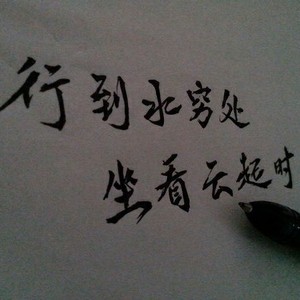 行到水穷处
坐看云起时